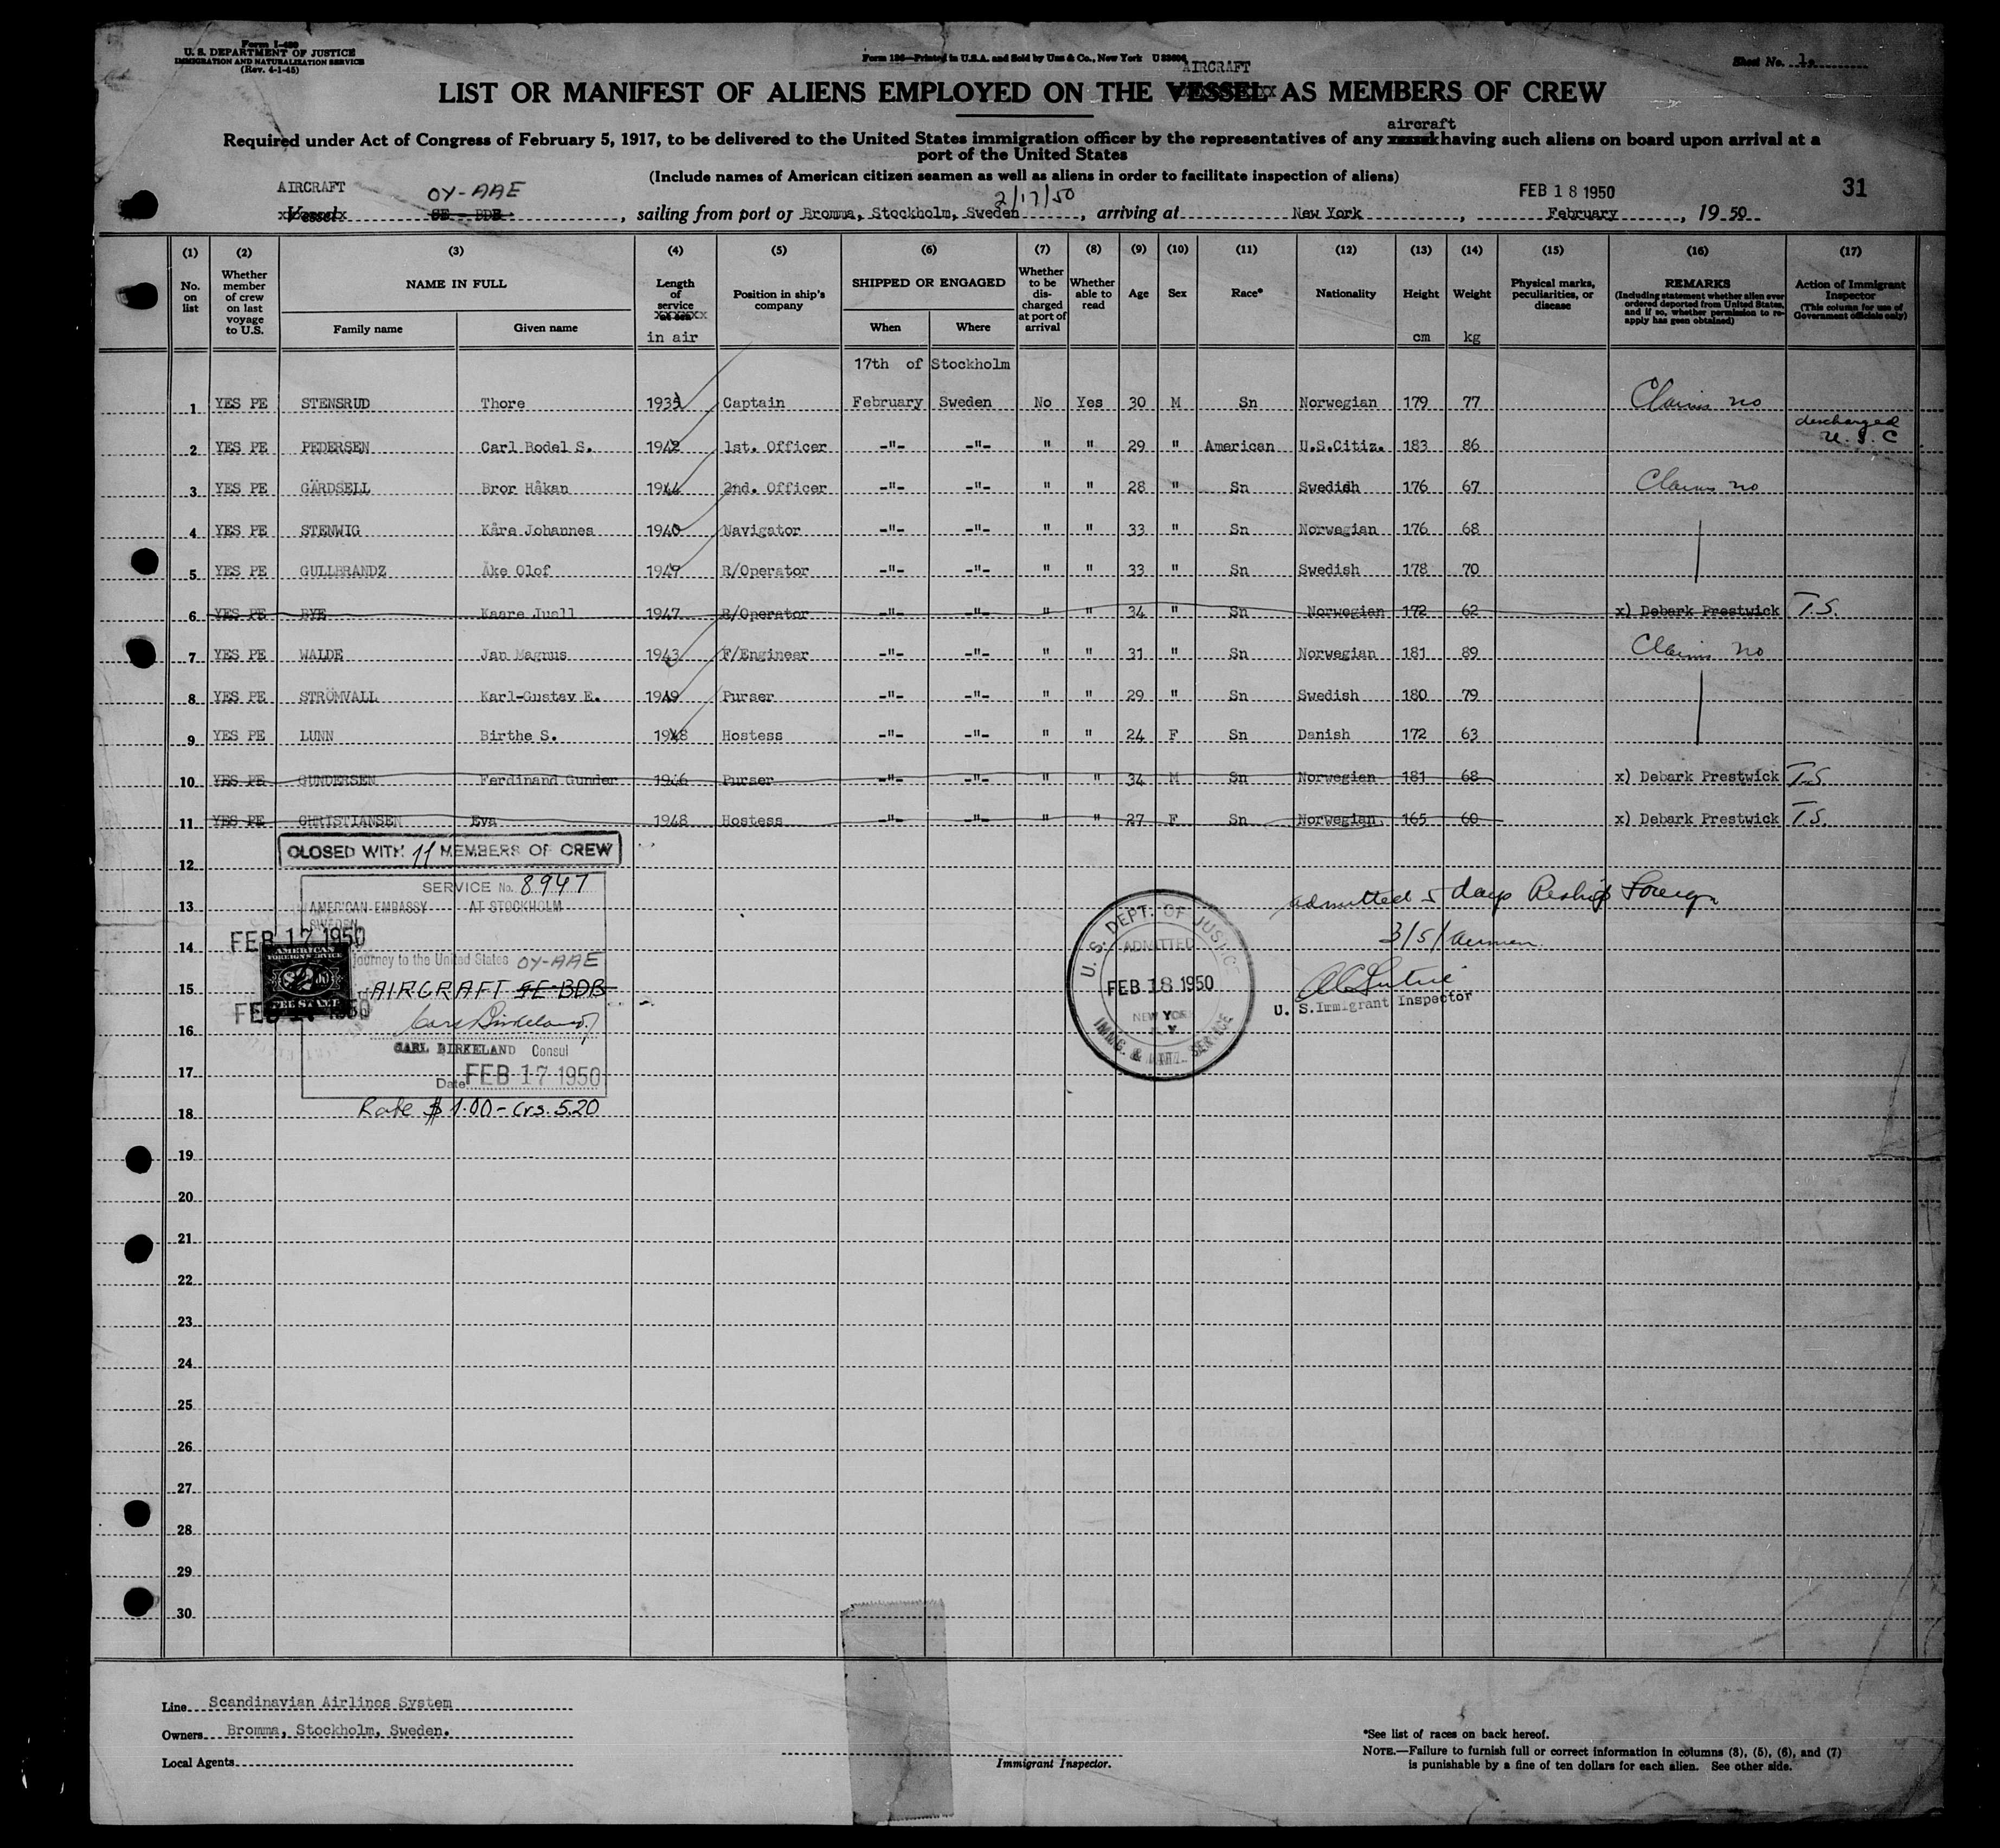 Form I-480
U. S. DEPARTMENT OF JUSTICE
IMMIGRATION AND NATURALIZATION SERVICE
(Rev. 4-1-45)
Form 136—Printed in U.S.A. and Sold by Unz & Co., New York
Sheet No. 1.
AIRCRAFT
LIST OR MANIFEST OF ALIENS EMPLOYED ON THE VESSEL AS MEMBERS OF CREW
aircraft
Required under Act of Congress of February 5, 1917, to be delivered to the United States immigration officer by the representatives of any having such aliens on board upon arrival at a
port of the United States
(Include names of American citizen seamen as well as aliens in order to facilitate inspection of aliens)
AIRCRAFT OY-AAE 2/17/50 FEB 18 1950 31
Vessel SE - BDB, sailing from port of Bromma, Stockholm, Sweden, arriving at New York, February, 19 50
(1) (2) (3) (4) (5) (6) (7) (8) (9) (10) (11) (12) (13) (14) (15) (16) (17)
No. on list
Whether member of crew on last voyage to U.S.
NAME IN FULL
Family name Given name
Length of service at sea in air
Position in ship's company
SHIPPED OR ENGAGED
When Where
Whether to be discharged at port of arrival
Whether able to read
Age Sex Race* Nationality Height cm Weight kg
Physical marks, peculiarities, or disease
REMARKS
(Including statement whether alien ever ordered deported from United States, and if so, whether permission to re-apply has been obtained)
Action of Immigrant Inspector
(This column for use of Government officials only)
17th of Stockholm
1 YES PE STENSRUD Thore 1935 Captain February Sweden No Yes 30 M Sn Norwegian 179 77 Claims no
2 YES PE PEDERSEN Carl Bodel S. 1942 1st. Officer -"- -"- " " 29 " American U.S.Citiz. 183 86 discharged U.S.C
3 YES PE GÄRDSELL Bror Håkan 1944 2nd. Officer -"- -"- " " 28 " Sn Swedish 176 67 Claims no
4 YES PE STENWIG Kåre Johannes 1940 Navigator -"- -"- " " 33 " Sn Norwegian 176 68
5 YES PE GULLBRANDZ Åke Olof 1949 R/Operator -"- -"- " " 33 " Sn Swedish 178 70
6 YES PE RYE Kaare Juell 1947 R/Operator -"- -"- " " 34 " Sn Norwegian 172 62 x) Debark Prestwick T.S.
7 YES PE WALDE Jan Magnus 1943 F/Engineer -"- -"- " " 31 " Sn Norwegian 181 89 Claims no
8 YES PE STRÖMVALL Karl-Gustav E. 1949 Purser -"- -"- " " 29 " Sn Swedish 180 79
9 YES PE LUNN Birthe S. 1948 Hostess -"- -"- " " 24 F Sn Danish 172 63
10 YES PE GUNDERSEN Ferdinand Gunder 1946 Purser -"- -"- " " 34 M Sn Norwegian 181 68 x) Debark Prestwick T.S.
11 YES PE CHRISTIANSEN Eva 1948 Hostess -"- -"- " " 27 F Sn Norwegian 165 60 x) Debark Prestwick T.S.
12
CLOSED WITH 11 MEMBERS OF CREW
SERVICE No. 8947
13
AMERICAN EMBASSY AT STOCKHOLM
SWEDEN
14
FEB 17 1950
AMERICAN
FOREIGN SERVICE
$2.00
FEE STAMP
journey to the United States OY-AAE
15
AIRCRAFT SE-BDB
FEB 17 1950
16
Carl Birkeland
CARL BIRKELAND Consul
17
Date FEB 17 1950
Rate $ 1.00 - Crs. 5.20
18
admitted 5 days Reship Foreign
3/5/ airmen
U. S. Immigrant Inspector
U. S. DEPT. OF JUSTICE
ADMITTED
FEB 18 1950
NEW YORK
N. Y.
IMMG. & NAT. SERVICE
19
20
21
22
23
24
25
26
27
28
29
30
Line Scandinavian Airlines System
Owners Bromma, Stockholm, Sweden.
Local Agents
Immigrant Inspector.
*See list of races on back hereof.
NOTE.—Failure to furnish full or correct information in columns (3), (5), (6), and (7)
is punishable by a fine of ten dollars for each alien. See other side.